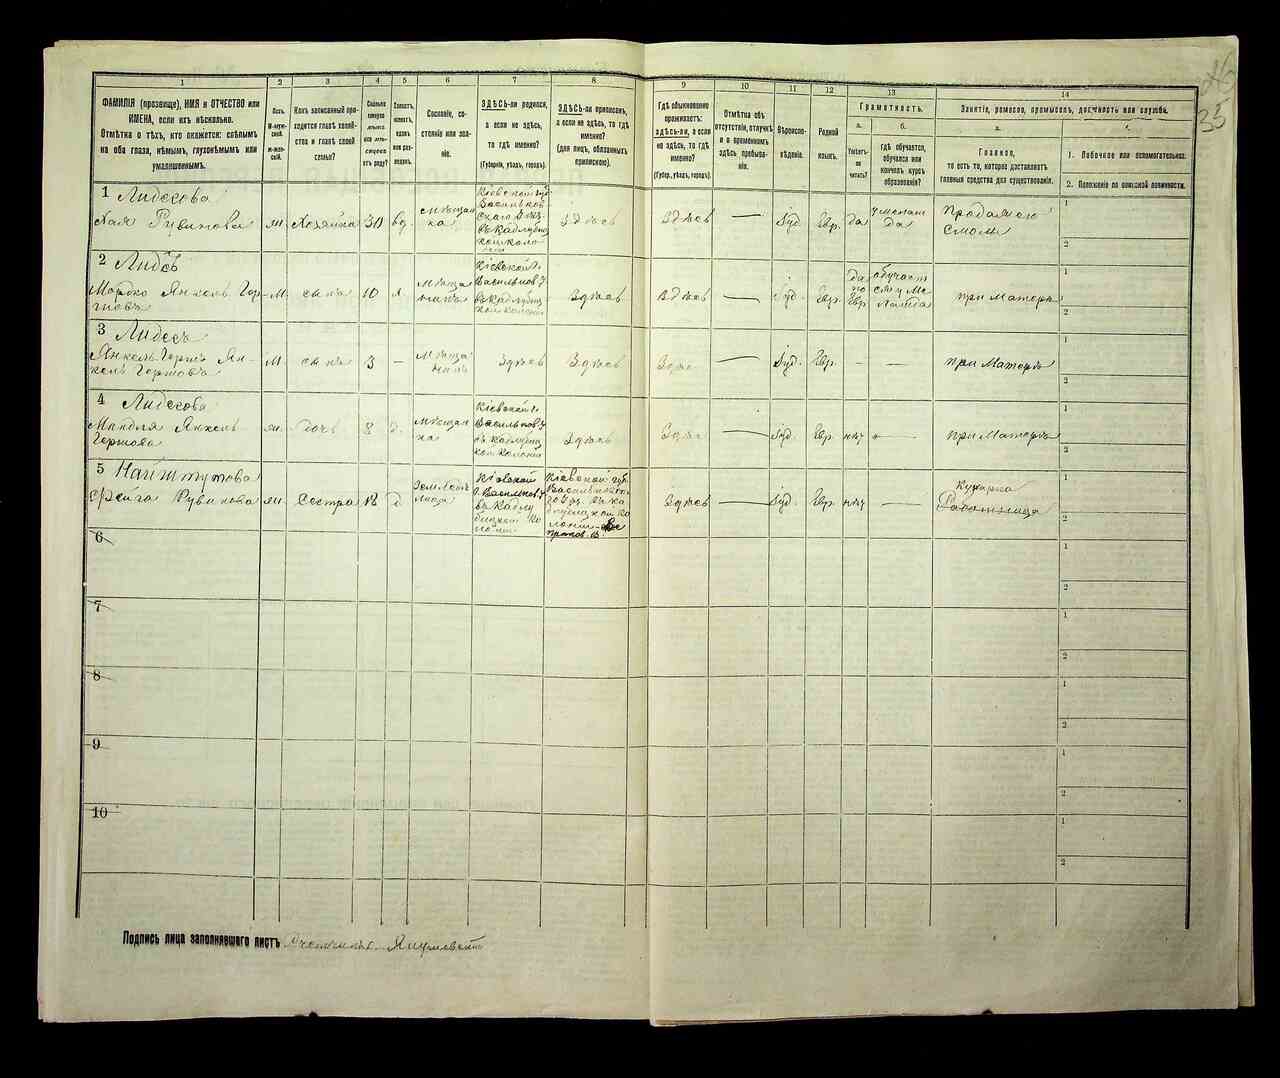 26
35
1
2
3
4
5
6
7
8
9
10
11
12
13
14
ФАМИЛІЯ (прозвище), ИМЯ и ОТЧЕСТВО или
ИМЕНА, если ихъ нѣсколько.
Отмѣтка о тѣхъ, кто окажется: слѣпымъ
на оба глаза, нѣмымъ, глухонѣмымъ или
умалишеннымъ.
Полъ.
М-муж-
ской.
ж-жен-
скій.
Какъ записанный при-
ходится главѣ хозяй-
ства и главѣ своей
семьи?
Сколько
минуло
лѣтъ
или мѣся-
цевъ
отъ роду?
Холостъ,
женатъ,
вдовъ
или раз-
веденъ.
Сословіе, со-
стояніе или зва-
ніе.
ЗДѢСЬ-ли родился,
а если не здѣсь,
то гдѣ именно?
(Губернія, уѣздъ, городъ).
ЗДѢСЬ-ли приписанъ,
а если не здѣсь, то гдѣ
именно?
(для лицъ, обязанныхъ
припискою).
Гдѣ обыкновенно
проживаетъ:
здѣсь-ли, а если
не здѣсь, то гдѣ
именно?
(Губер., уѣздъ, городъ).
Отмѣтка объ
отсутствіи, отлучкѣ
и о временномъ
здѣсь пребыва-
ніи.
Вѣроиспо-
вѣданіе.
Родной
языкъ.
Грамотность.
а.
Умѣетъ-
ли
читать?
б.
гдѣ обучается,
обучался или
кончилъ курсъ
образованія?
Занятіе, ремесло, промыселъ, должность или служба.
а.
Главное,
то есть то, которое доставляетъ
главныя средства для существованія.
1. Побочное или вспомогательное.
2. Положеніе по воинской повинности.
1 Лидесова
Хая Рувинова ж. Хозяйка 30 вд. мѣщан
ка Кіевской губ
Васильков-
скаго уѣз.
въ Кадлубиц
кой коло
ніи Здѣсь Здѣсь — Іуд. Евр. да
Продажею
смолы
1
2
2 Лидесъ
Мордко Янкель Гер-
шковъ М. сынъ 10 х. мѣща
нинъ Кіевской г.
Васильков у
въ Кадлубиц
кой колоніи Здѣсь Здѣсь — Іуд. Евр. да
по
Евр обучает
ся у Ме
ламда при Матери
1
2
3 Лидесъ
Янкель-Гершъ Ян-
кель Гершовъ М сынъ 3 — мѣща
нинъ Здѣсь Здѣсь Здѣсь — Іуд. Евр. — при Матери
1
2
4 Лидесова
Миндля Янкель
Гершова ж. дочь 8 д. мѣщан
ка Кіевской г.
Васильков у
въ Кадлубиц
кой колоніи Здѣсь Здѣсь — Іуд. Евр. нѣт — При Матери
1
2
5 Найштутова
Фрейга Рувинова ж. Сестра 18 д. Кіевской
г. Васильков у
въ Кадлу
бицкой ко
лоніи Кіевской губ.
Васильковска
го уѣз. въ Ка
длубицкой ко
лоніи Здѣсь — Іуд. Евр нѣт — Кухарка
Работница
1
2
6
1
2
7
1
2
8
1
2
9
1
2
10
1
2
Подпись лица заполнявшаго листъ Счетчикъ